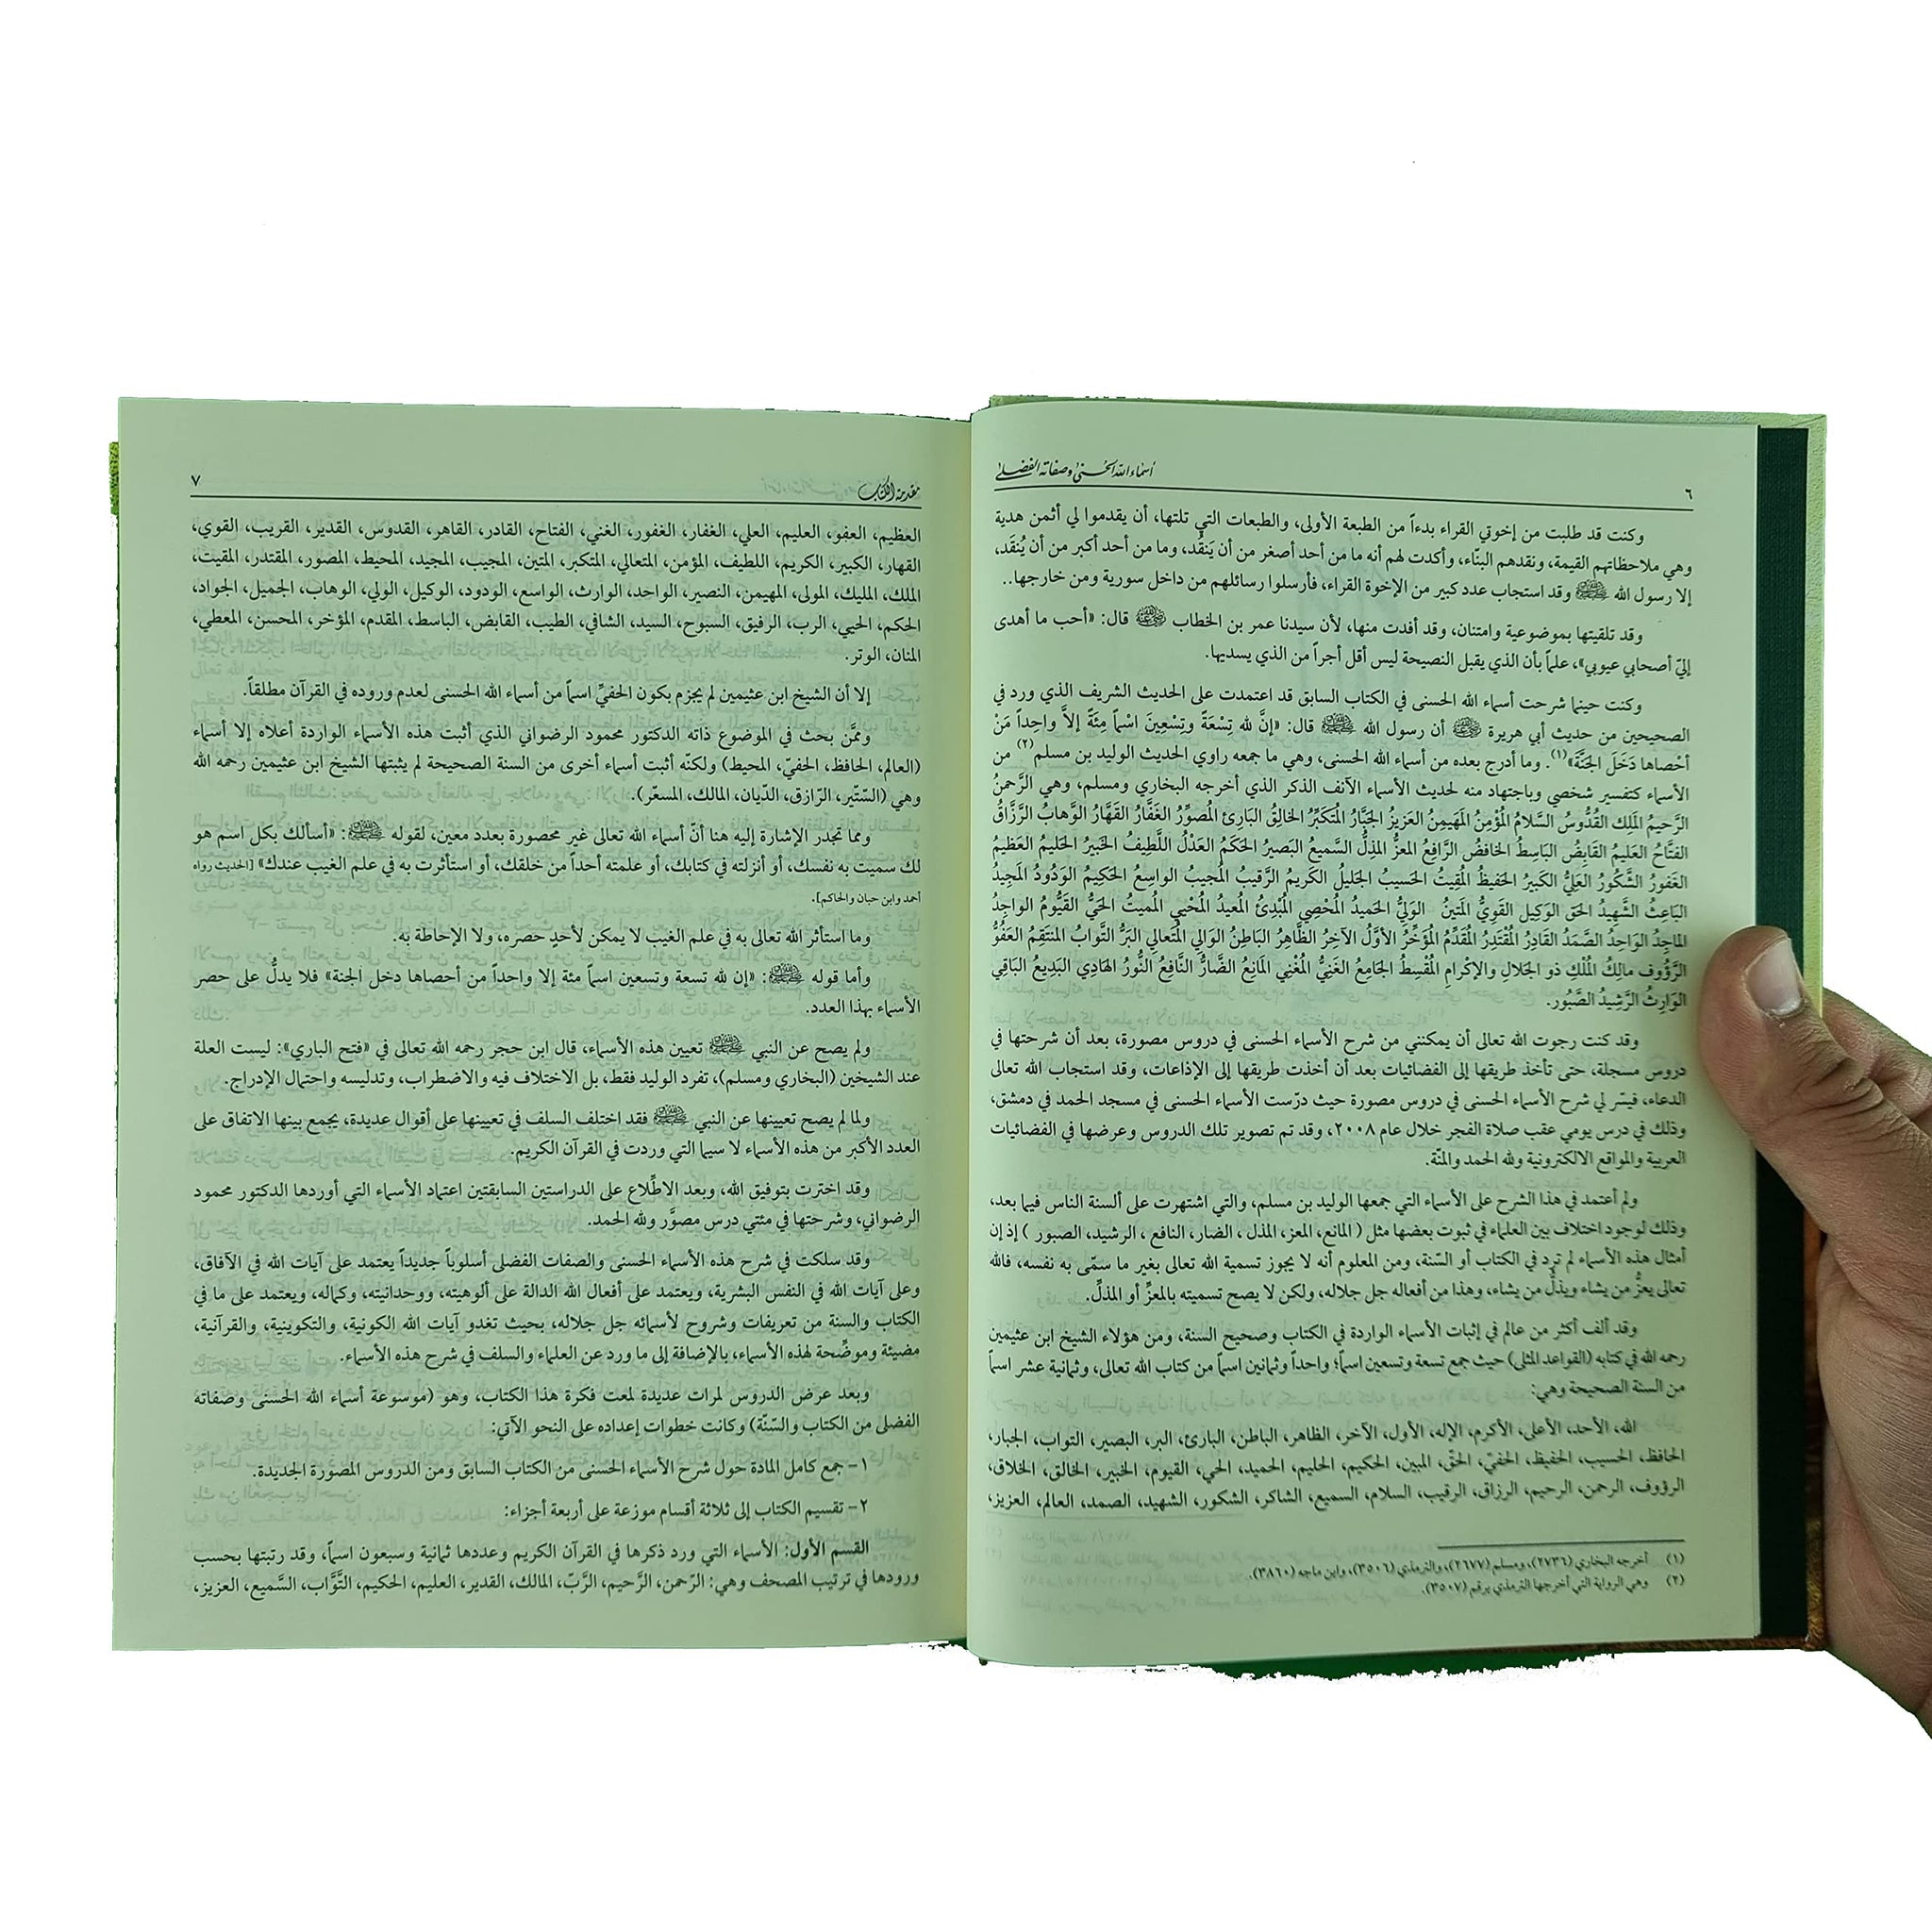 ٦
أسماء الله الحسنى وصفاته الفضلى
وكنت قد طلبت من إخوتي القراء بدءاً من الطبعة الأولى، والطبعات التي تلتها، أن يقدموا لي أثمن هدية
وهي ملاحظاتهم القيمة، ونقدهم البنّاء، وأكدت لهم أنه ما من أحد أصغر من أن يَنقُد، وما من أحد أكبر من أن يُنقَد،
إلا رسول الله ﷺ وقد استجاب عدد كبير من الإخوة القراء، فأرسلوا رسائلهم من داخل سورية ومن خارجها..
وقد تلقيتها بموضوعية وامتنان، وقد أفدت منها، لأن سيدنا عمر بن الخطاب ﷺ قال: «أحب ما أهدى
إليّ أصحابي عيوبي»، علماً بأن الذي يقبل النصيحة ليس أقل أجراً من الذي يسديها.
وكنت حينما شرحت أسماء الله الحسنى في الكتاب السابق قد اعتمدت على الحديث الشريف الذي ورد في
الصحيحين من حديث أبي هريرة ﷺ أن رسول الله ﷺ قال: «إنَّ لله تِسْعَةً وتِسْعِينَ اسْماً مِئَةً إلاَّ واحِداً مَنْ
أحْصاها دَخَلَ الجَنَّةَ»(١). وما أدرج بعده من أسماء الله الحسنى، وهي ما جمعه راوي الحديث الوليد بن مسلم(٢) من
الأسماء كتفسير شخصي وباجتهاد منه لحديث الأسماء الآنف الذكر الذي أخرجه البخاري ومسلم، وهي الرَّحمنُ
الرَّحيمُ المَلِك القُدُّوسُ السَّلامُ المُؤْمِنُ المَهَيمِنُ العَزيزُ الجَبَّارُ المُتَكَبِّرُ الخالِقُ البَارِئ المُصوِّرُ الغَفَّارُ القَهَّارُ الوَّهابُ الرَّزَّاقُ
الفتَّاحُ العَليمُ القَابِضُ البَاسِطُ الخافضُ الرَّافِعُ المعزُّ المذِلُّ السَّميعُ البَصيرُ الحَكَمُ العَدْلُ اللَّطِيفُ الخَبيرُ الحَليمُ العَظيمُ
الغَفورُ الشَّكُورُ العَلِيُّ الكَبيرُ الحَفيظُ المُقِيتُ الحَسيبُ الجَليلُ الكَريمُ الرَّقيبُ المُجيبُ الواسِعُ الحَكِيمُ الوَدُودُ المَجِيدُ
البَاعِثُ الشَّهِيدُ الحَق الوَكِيل القَوِيُّ المَتينُ الوَلِيُّ الحَميدُ المُحْصِي المُبْدِئُ المُعيدُ المُحْيِي المُميتُ الحَيُّ القَيُّومُ الواجِدُ
الماجِدُ الوَاحِدُ الصَّمَدُ القَادِرُ المُقْتَدِرُ المُقَدِّمُ المُؤَخِّرُ الأوَّلُ الآخِرُ الظَّاهِرُ البَاطِنُ الوَالي المُتَعالي البَرُّ التَّوابُ المنتَقِمُ العَفُوُّ
الرَّؤُوف مالِكُ المُلْك ذو الجَلالِ والإكْرامِ المُقْسِطُ الجَامِعُ الغَنِيُّ المُغْنِي المَانِعُ الضَّارُّ النَّافِعُ النُّورُ الهَادِي البَدِيعُ البَاقِي
الوَارِثُ الرَّشِيدُ الصَّبُور.
وقد كنت رجوت الله تعالى أن يمكنني من شرح الأسماء الحسنى في دروس مصورة، بعد أن شرحتها في
دروس مسجلة، حتى تأخذ طريقها إلى الفضائيات بعد أن أخذت طريقها إلى الإذاعات، وقد استجاب الله تعالى
الدعاء، فيسّر لي شرح الأسماء الحسنى في دروس مصورة حيث درّست الأسماء الحسنى في مسجد الحمد في دمشق،
وذلك في درس يومي عقب صلاة الفجر خلال عام ٢٠٠٨، وقد تم تصوير تلك الدروس وعرضها في الفضائيات
العربية والمواقع الالكترونية ولله الحمد والمنّة.
ولم أعتمد في هذا الشرح على الأسماء التي جمعها الوليد بن مسلم، والتي اشتهرت على ألسنة الناس فيما بعد،
وذلك لوجود اختلاف بين العلماء في ثبوت بعضها مثل ( المانع، المعز، المذل ، الضار، النافع ، الرشيد، الصبور ) إذ إن
أمثال هذه الأسماء لم تَرِد في الكتاب أو السّنة، ومن المعلوم أنه لا يجوز تسمية الله تعالى بغير ما سمّى به نفسه، فالله
تعالى يعزُّ من يشاء ويذلُّ من يشاء، وهذا من أفعاله جل جلاله، ولكن لا يصح تسميته بالمعزِّ أو المذلِّ.
وقد ألف أكثر من عالم في إثبات الأسماء الواردة في الكتاب وصحيح السنة، ومن هؤلاء الشيخ ابن عثيمين
رحمه الله في كتابه (القواعد المثلى) حيث جمع تسعة وتسعين اسماً؛ واحداً وثمانين اسماً من كتاب الله تعالى، وثمانية عشر اسماً
من السنة الصحيحة وهي:
الله، الأحد، الأعلى، الأكرم، الإله، الأول، الآخر، الظاهر، الباطن، البارئ، البر، البصير، التواب، الجبار،
الحافظ، الحسيب، الحفيظ، الحفيّ، الحقّ، المبين، الحكيم، الحليم، الحميد، الحي، القيوم، الخبير، الخالق، الخلاق،
الرؤوف، الرحمن، الرحيم، الرزاق، الرقيب، السلام، السميع، الشاكر، الشكور، الشهيد، الصمد، العالم، العزيز،
(١) أخرجه البخاري (٢٧٣٦)، ومسلم (٢٦٧٧)، والترمذي (٣٥٠٦)، وابن ماجه (٣٨٦٠).
(٢) وهي الرواية التي أخرجها الترمذي برقم (٣٥٠٧).
مقدمة الكتاب
٧
العظيم، العفو، العليم، العلي، الغفار، الغفور، الغني، الفتاح، القادر، القاهر، القدوس، القدير، القريب، القوي،
القهار، الكبير، الكريم، اللطيف، المؤمن، المتعالي، المتكبر، المتين، المجيب، المجيد، المحيط، المصور، المقتدر، المقيت،
الملك، المليك، المولى، المهيمن، النصير، الواحد، الوارث، الواسع، الودود، الوكيل، الولي، الوهاب، الجميل، الجواد،
الحكم، الحيي، الرب، الرفيق، السبوح، السيد، الشافي، الطيب، القابض، الباسط، المقدم، المؤخر، المحسن، المعطي،
المنان، الوتر.
إلا أن الشيخ ابن عثيمين لم يجزم بكون الحفيِّ اسماً من أسماء الله الحسنى لعدم وروده في القرآن مطلقاً.
وممَّن بحث في الموضوع ذاته الدكتور محمود الرضواني الذي أثبت هذه الأسماء الواردة أعلاه إلا أسماء
(العالم، الحافظ، الحفيّ، المحيط) ولكنّه أثبت أسماء أخرى من السنة الصحيحة لم يثبتها الشيخ ابن عثيمين رحمه الله
وهي (السّتّير، الرّازق، الدّيان، المالك، المسعّر).
ومما تجدر الإشارة إليه هنا أنّ أسماء الله تعالى غير محصورة بعدد معين، لقوله ﷺ: «أسألك بكل اسم هو
لك سميت به نفسك، أو أنزلته في كتابك، أو علمته أحداً من خلقك، أو استأثرت به في علم الغيب عندك» [الحديث رواه
أحمد وابن حبان والحاكم].
وما استأثر الله تعالى به في علم الغيب لا يمكن لأحدٍ حصره، ولا الإحاطة به.
وأما قوله ﷺ: «إن لله تسعة وتسعين اسماً مئة إلا واحداً من أحصاها دخل الجنة» فلا يدلُّ على حصر
الأسماء بهذا العدد.
ولم يصح عن النبي ﷺ تعيين هذه الأسماء، قال ابن حجر رحمه الله تعالى في «فتح الباري»: ليست العلة
عند الشيخين (البخاري ومسلم)، تفرد الوليد فقط، بل الاختلاف فيه والاضطراب، وتدليسه واحتمال الإدراج.
ولما لم يصح تعيينها عن النبي ﷺ فقد اختلف السلف في تعيينها على أقوال عديدة، يجمع بينها الاتفاق على
العدد الأكبر من هذه الأسماء لا سيما التي وردت في القرآن الكريم.
وقد اخترت بتوفيق الله، وبعد الاطِّلاع على الدراستين السابقتين اعتماد الأسماء التي أوردها الدكتور محمود
الرضواني، وشرحتها في مئتي درس مصوَّر ولله الحمد.
وقد سلكت في شرح هذه الأسماء الحسنى والصفات الفضلى أسلوباً جديداً يعتمد على آيات الله في الآفاق،
وعلى آيات الله في النفس البشرية، ويعتمد على أفعال الله الدالة على ألوهيته، ووحدانيته، وكماله، ويعتمد على ما في
الكتاب والسنة من تعريفات وشروح لأسمائه جل جلاله، بحيث تغدو آيات الله الكونية، والتكوينية، والقرآنية،
مضيئة وموضِّحة لهذه الأسماء، بالإضافة إلى ما ورد عن العلماء والسلف في شرح هذه الأسماء.
وبعد عرض الدروس لمرات عديدة لمعت فكرة هذا الكتاب، وهو (موسوعة أسماء الله الحسنى وصفاته
الفضلى من الكتاب والسّنّة) وكانت خطوات إعداده على النحو الآتي:
١- جمع كامل المادة حول شرح الأسماء الحسنى من الكتاب السابق ومن الدروس المصورة الجديدة.
٢- تقسيم الكتاب إلى ثلاثة أقسام موزعة على أربعة أجزاء:
القسم الأول: الأسماء التي ورد ذكرها في القرآن الكريم وعددها ثمانية وسبعون اسماً، وقد رتبتها بحسب
ورودها في ترتيب المصحف وهي: الرّحمن، الرَّحيم، الرَّبّ، المالك، القدير، العليم، الحكيم، التَّوَّاب، السَّميع، العزيز،